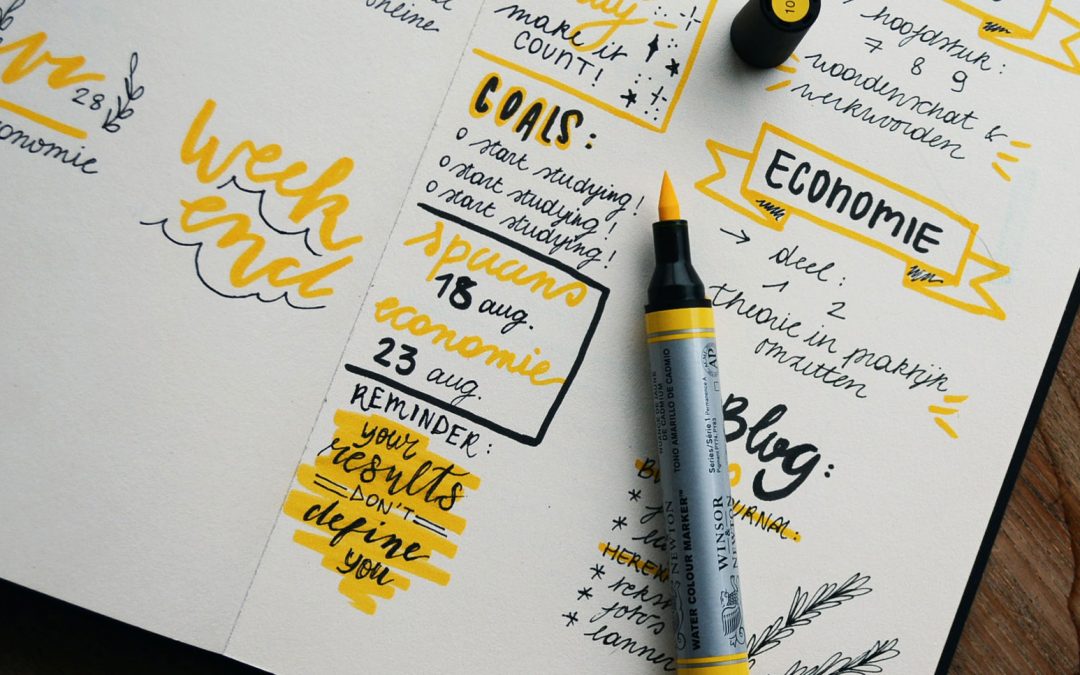 28
Week
end
make it
COUNT!
GOALS:
o start studying!
o start studying!
o start studying!
spaans
18 aug.
economie
23 aug.
REMINDER:
your
results
DON'T
define
you
10
hoofdstuk:
7 8 9
woordenschat &
werkwoorden
ECONOMIE
→ deel:
1 2
theorie in praktijk
omzetten
Blog:
*
*
*
*
*
TONO AMARILLO DE CADMIO
DE CADMIUM
Series/Série 1
AP
WINSOR
NEWTON
WATER COLOUR MARKER™